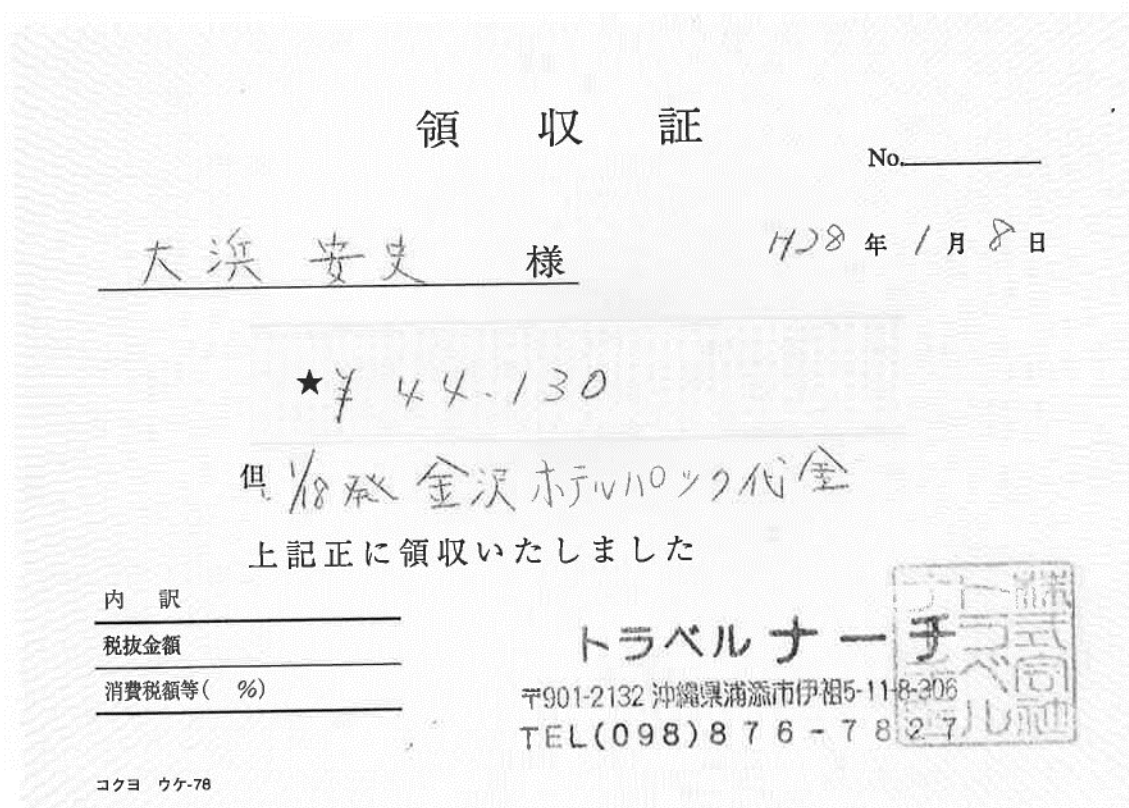 領 収 証
No.
大浜 安史 様
H28 年 1 月 8 日
★¥ 44.130
但 1/18発 金沢ホテルパック代金
上記正に領収いたしました
内 訳
税抜金額
消費税額等( %)
トラベルナーチ
〒901-2132 沖縄県浦添市伊祖5-11-8-306
TEL(098)876-7827
コクヨ ウケ-78